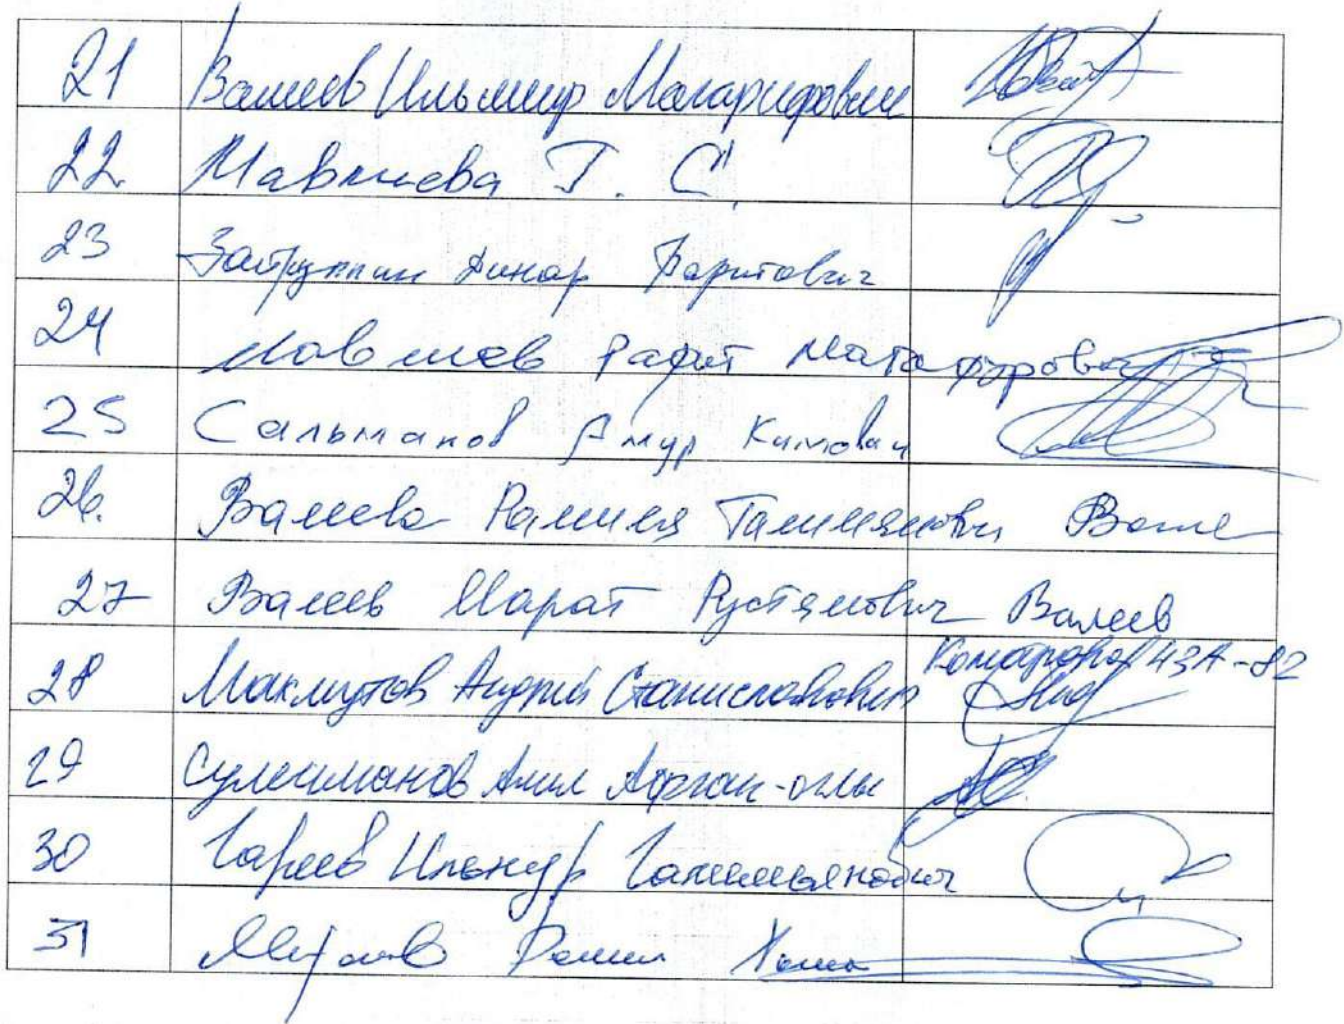 21 Валеев Ильмир Магарифович
22. Мавлиева Г. С.
23 Зайруллин Динар Фаритович
24 Мавлиев Рафит
25 Сальманов Амур Кимович
26. Валеева Рамиля Тали Вале
27 Валеев Марат Рустямович Валеев
28 Махмутов Андрей Станиславович 43А-82
29 Сулейманов Анил Афган-оглы
30 Гареев Ильнур Галимьянович
31